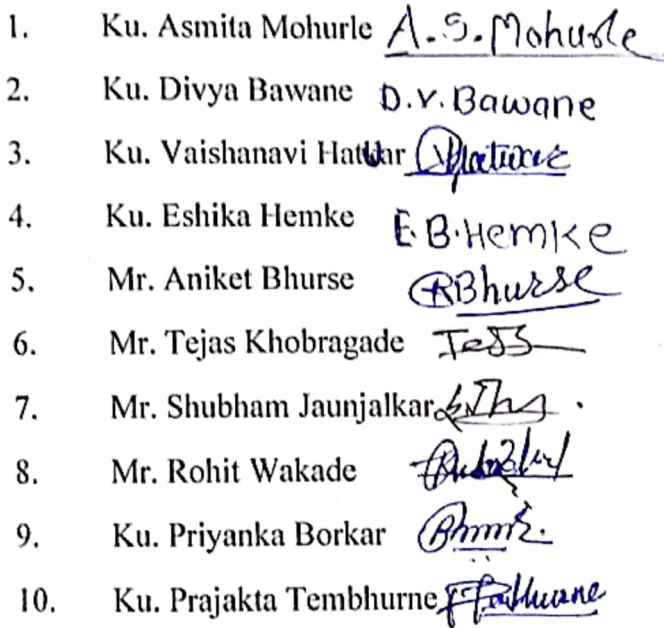 1. Ku. Asmita Mohurle A.S. Mohurle
2. Ku. Divya Bawane D.V. Bawane
3. Ku. Vaishanavi Hatwar
4. Ku. Eshika Hemke E.B. Hemke
5. Mr. Aniket Bhurse Bhurse
6. Mr. Tejas Khobragade
7. Mr. Shubham Jaunjalkar
8. Mr. Rohit Wakade
9. Ku. Priyanka Borkar
10. Ku. Prajakta Tembhurne